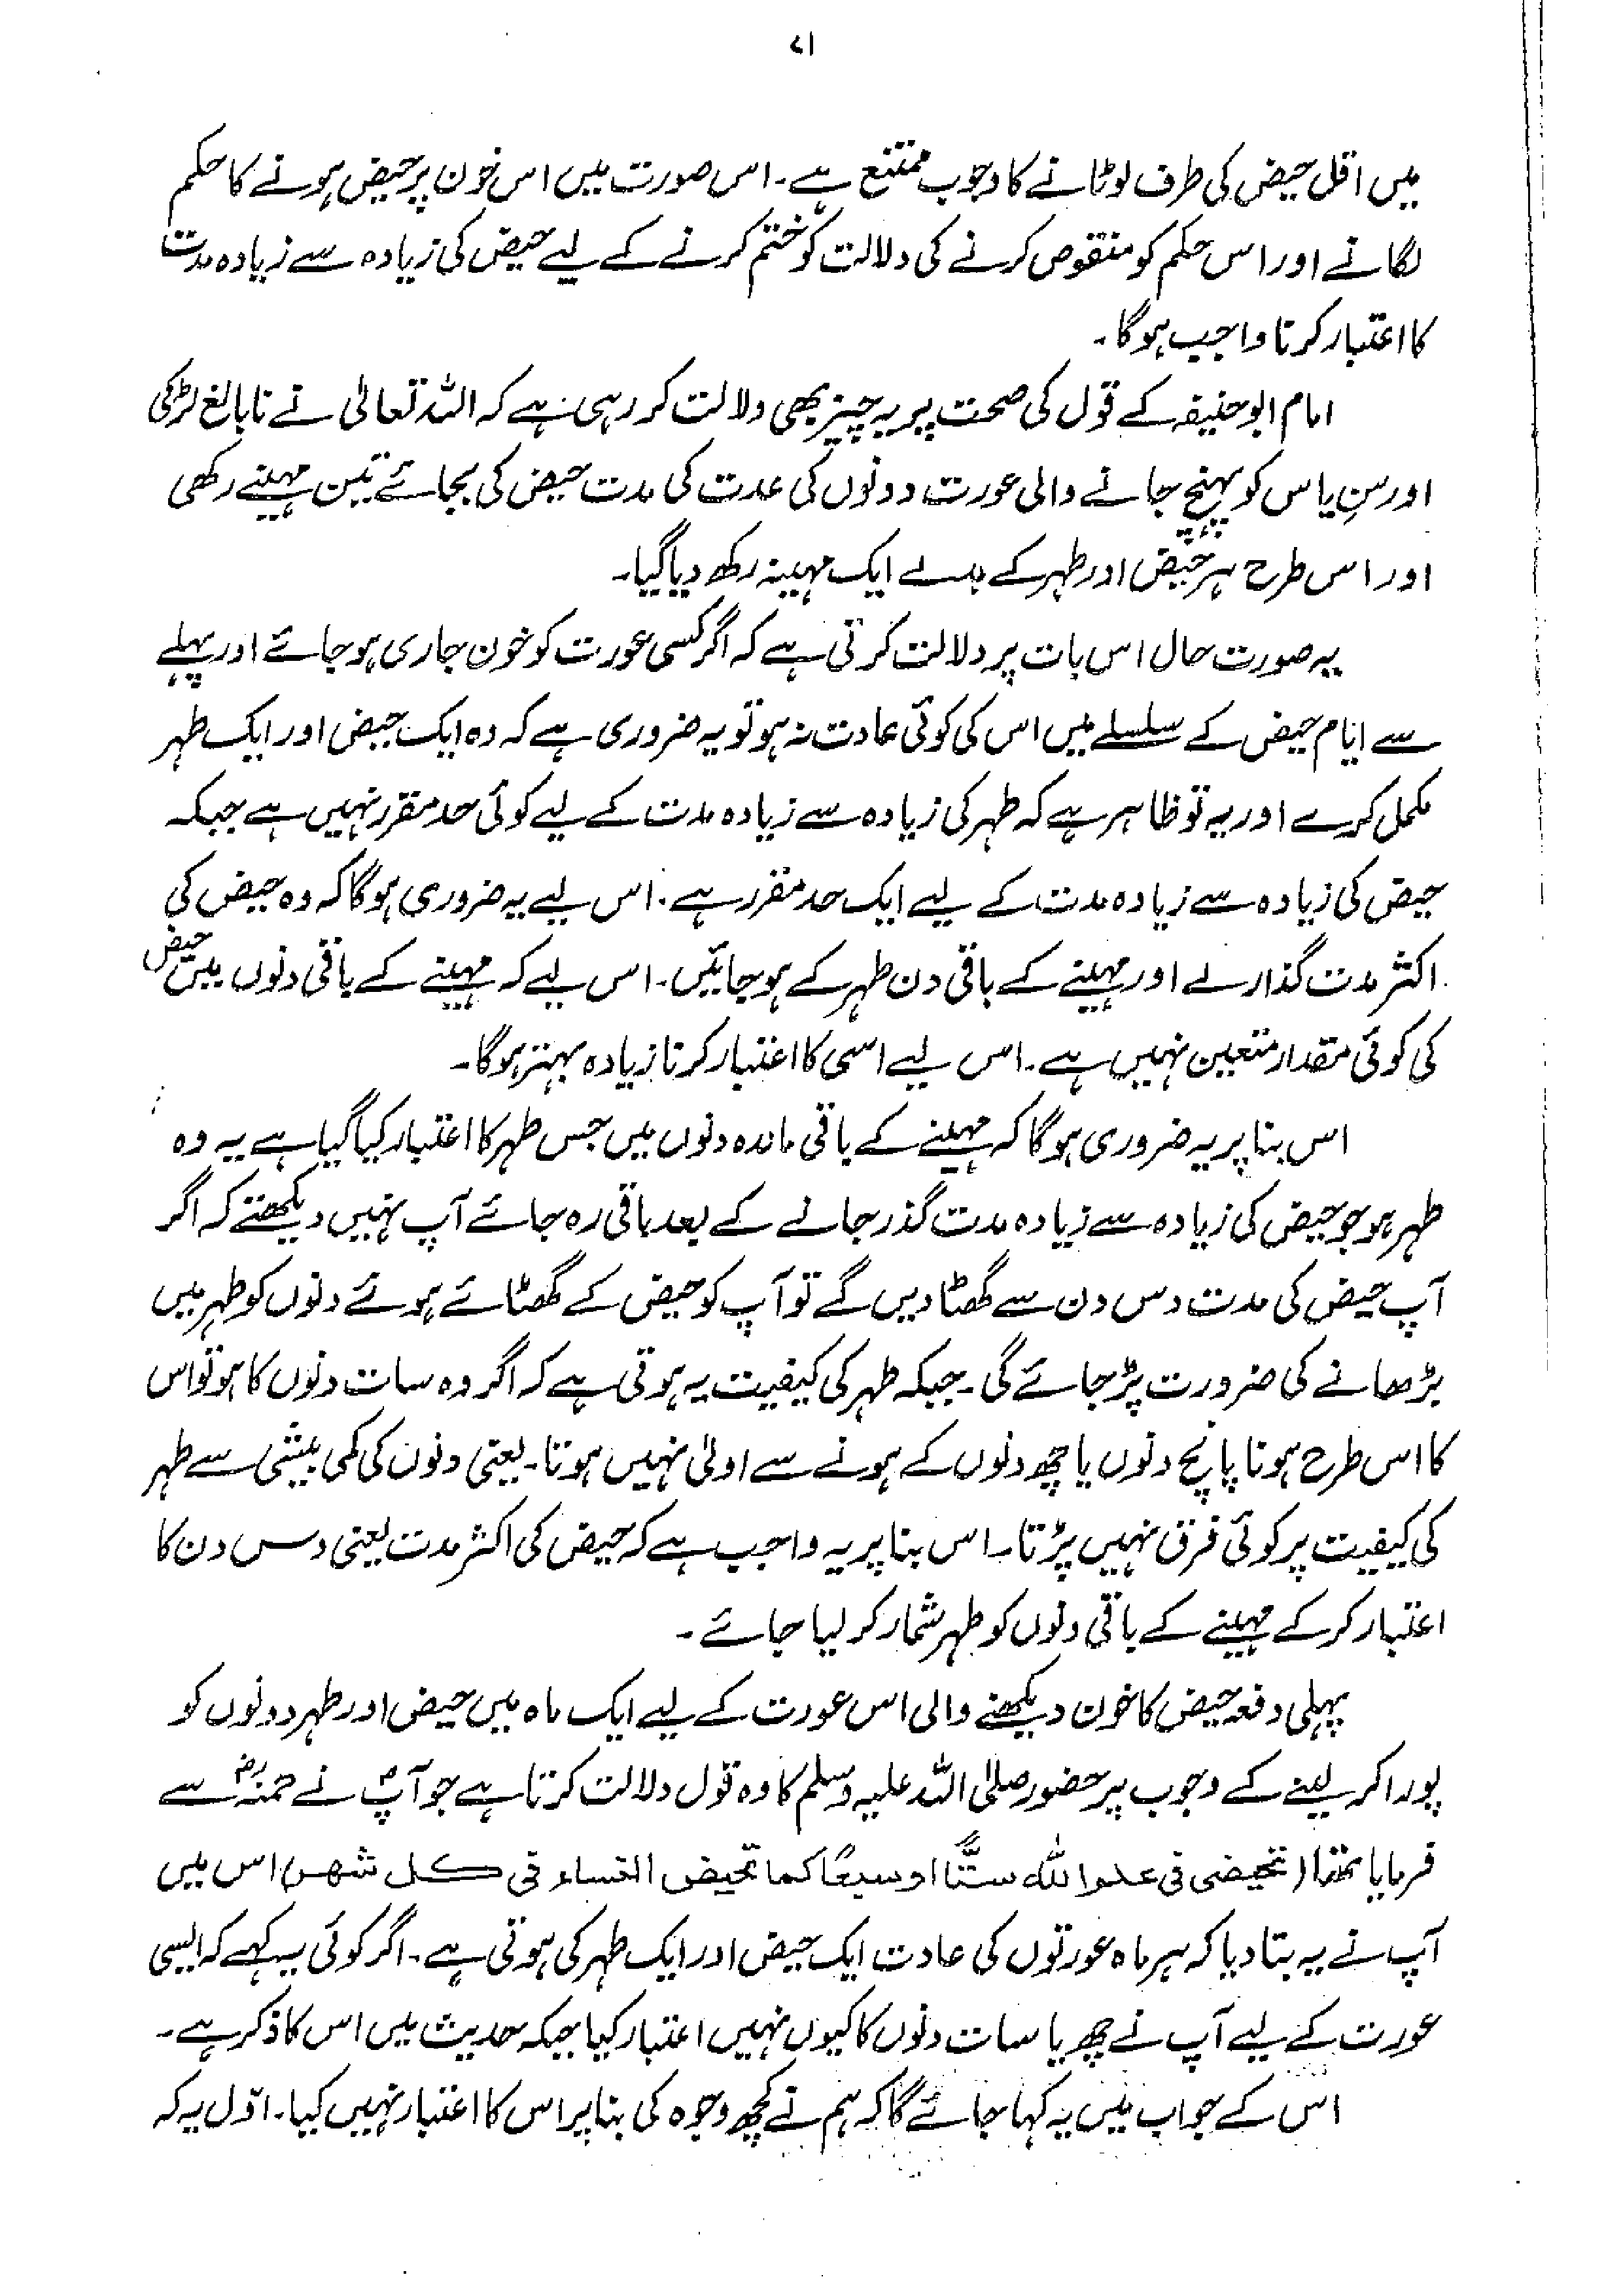 ۷۱
میں اقل حیض کی طرف لوٹانے کا وجوب ممتنع ہے۔ اس صورت میں اس خون پر حیض ہونے کا حکم
لگانے اور اس حکم کو منقوص کرنے کی دلالت کو ختم کرنے کے لیے حیض کی زیادہ سے زیادہ مدت
کا اعتبار کرنا واجب ہوگا۔
امام ابوحنیفہ کے قول کی صحت پر یہ چیز بھی دلالت کر رہی ہے کہ اللہ تعالیٰ نے نابالغ لڑکی
اور سنِ یاس کو پہنچ جانے والی عورت دونوں کی عدت کی مدت حیض کی بجائے تین مہینے رکھی
اور اس طرح ہر حیض اور طہر کے بدلے ایک مہینہ رکھ دیا گیا۔
یہ صورت حال اس بات پر دلالت کرتی ہے کہ اگر کسی عورت کو خون جاری ہو جائے اور پہلے
سے ایام حیض کے سلسلے میں اس کی کوئی عادت نہ ہو تو یہ ضروری ہے کہ وہ ایک حیض اور ایک طہر
مکمل کرے اور یہ تو ظاہر ہے کہ طہر کی زیادہ سے زیادہ مدت کے لیے کوئی حد مقرر نہیں ہے جبکہ
حیض کی زیادہ سے زیادہ مدت کے لیے ایک حد مقرر ہے۔ اس لیے یہ ضروری ہوگا کہ وہ حیض کی
اکثر مدت گذارلے اور مہینے کے باقی دن طہر کے ہو جائیں۔ اس لیے کہ مہینے کے باقی دنوں میں حیض
کی کوئی مقدار متعین نہیں ہے۔ اس لیے اسی کا اعتبار کرنا زیادہ بہتر ہوگا۔
اس بنا پر یہ ضروری ہوگا کہ مہینے کے باقی ماندہ دنوں میں جس طہر کا اعتبار کیا گیا ہے یہ وہ
طہر ہو جو حیض کی زیادہ سے زیادہ مدت گذر جانے کے بعد باقی رہ جائے آپ نہیں دیکھتے کہ اگر
آپ حیض کی مدت دس دن سے گھٹا دیں گے تو آپ کو حیض کے گھٹائے ہوئے دنوں کو طہر میں
بڑھانے کی ضرورت پڑ جائے گی۔ جبکہ طہر کی کیفیت یہ ہوتی ہے کہ اگر وہ سات دنوں کا ہو تو اس
کا اس طرح ہونا پانچ دنوں یا چھ دنوں کے ہونے سے اولیٰ نہیں ہوتا۔ یعنی دنوں کی کمی بیشی سے طہر
کی کیفیت پر کوئی فرق نہیں پڑتا۔ اس بنا پر یہ واجب ہے کہ حیض کی اکثر مدت یعنی دس دن کا
اعتبار کر کے مہینے کے باقی دنوں کو طہر شمار کر لیا جائے۔
پہلی دفعہ حیض کا خون دیکھنے والی اس عورت کے لیے ایک ماہ میں حیض اور طہر دونوں کو
پورا کر لینے کے وجوب پر حضور صلی اللہ علیہ وسلم کا وہ قول دلالت کرتا ہے جو آپؐ نے حمنہؓ سے
فرمایا تھا (تحیضی فی علم اللہ ستًّا او سبعًا کما تحیض النساء فی کل شھر) اس میں
آپ نے یہ بتا دیا کہ ہر ماہ عورتوں کی عادت ایک حیض اور ایک طہر کی ہوتی ہے۔ اگر کوئی یہ کہے کہ ایسی
عورت کے لیے آپ نے چھ یا سات دنوں کا کیوں نہیں اعتبار کیا جبکہ حدیث میں اس کا ذکر ہے۔
اس کے جواب میں یہ کہا جائے گا کہ ہم نے کچھ وجوہ کی بنا پر اس کا اعتبار نہیں کیا۔ اوّل یہ کہ